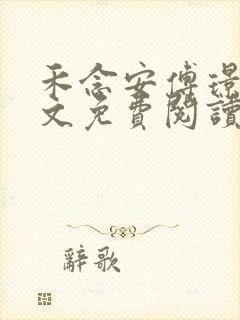 禾念安傅璟
文免費閱讀
辭歌